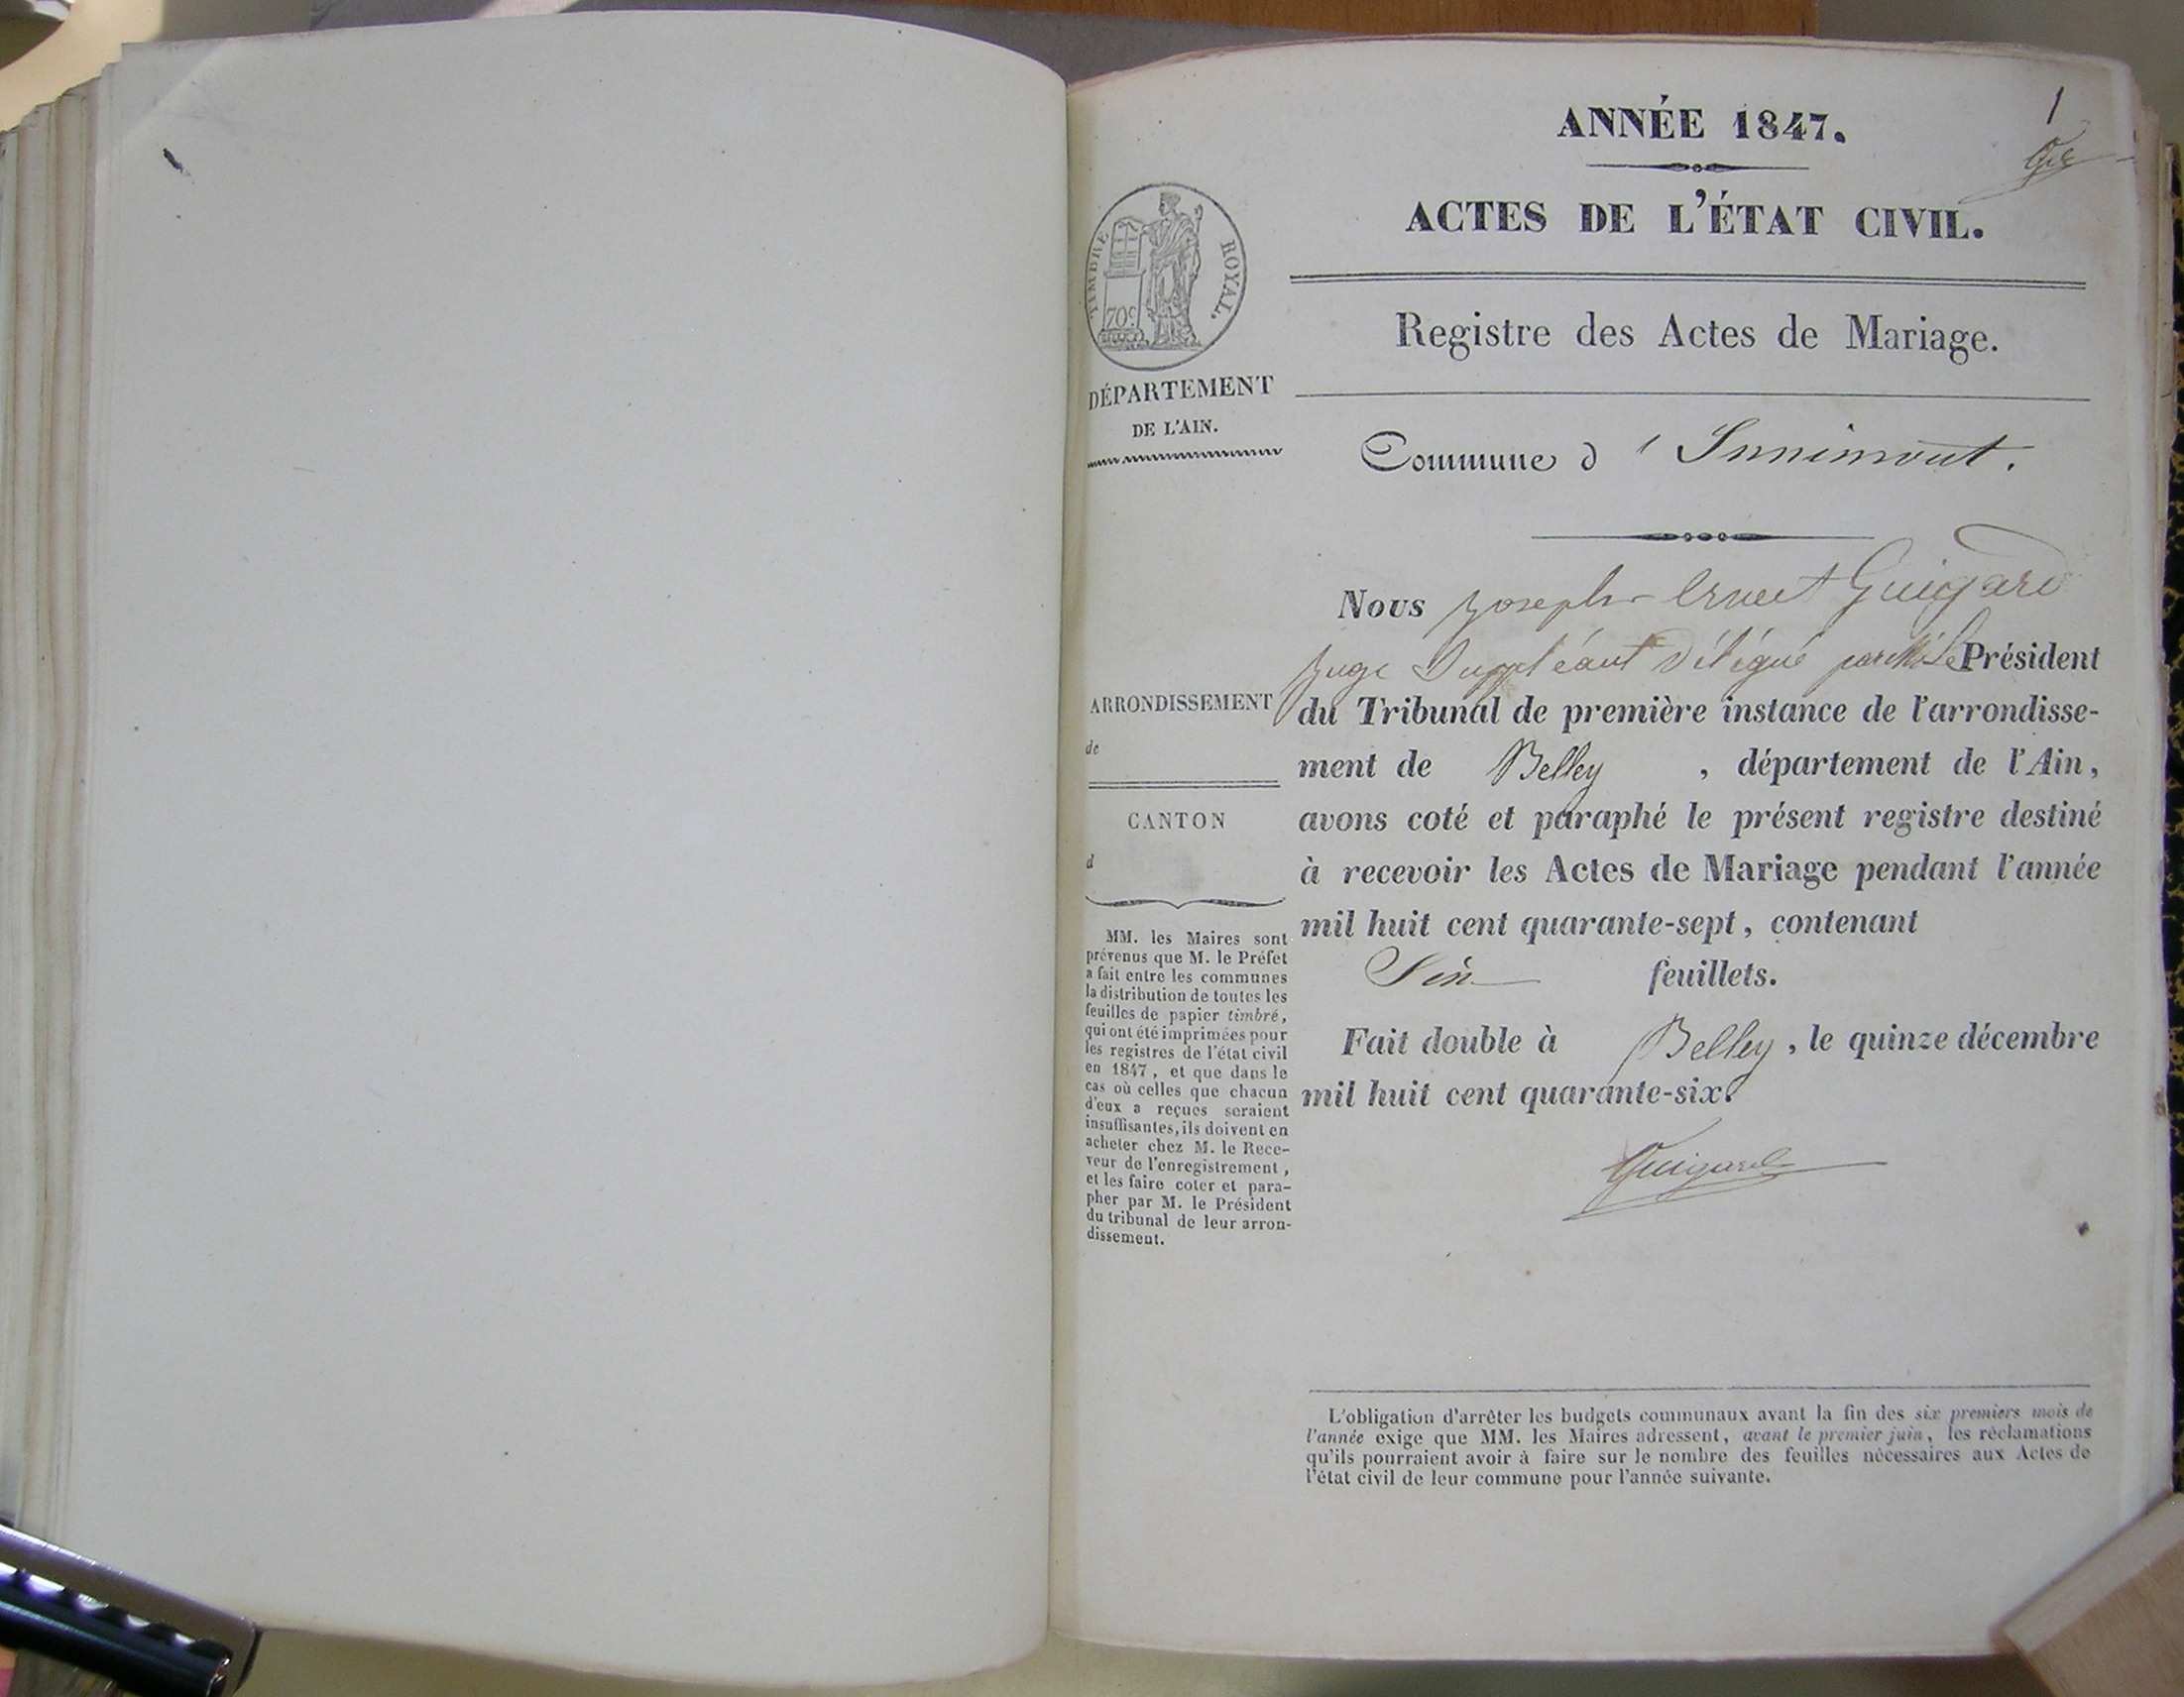 1
ANNÉE 1847.
ACTES DE L'ÉTAT CIVIL.
TIMBRE ROYAL.
70c
Registre des Actes de Mariage.
DÉPARTEMENT
DE L'AIN.
Commune d'Innimont.
Nous Joseph Ernest Guigard
Juge Suppléant Délégué par Mr Le Président
du Tribunal de première instance de l'arrondisse-
ment de Belley, département de l'Ain,
avons coté et paraphé le présent registre destiné
à recevoir les Actes de Mariage pendant l'année
mil huit cent quarante-sept, contenant
Six feuillets.
Fait double à Belley, le quinze décembre
mil huit cent quarante-six.
Guigard
ARRONDISSEMENT
de
CANTON
d
MM. les Maires sont
prévenus que M. le Préfet
a fait entre les communes
la distribution de toutes les
feuilles de papier timbré,
qui ont été imprimées pour
les registres de l'état civil
en 1847, et que dans le
cas où celles que chacun
d'eux a reçues seraient
insuffisantes, ils doivent en
acheter chez M. le Rece-
veur de l'enregistrement,
et les faire coter et para-
pher par M. le Président
du tribunal de leur arron-
dissement.
L'obligation d'arrêter les budgets communaux avant la fin des six premiers mois de
l'année exige que MM. les Maires adressent, avant le premier juin, les réclamations
qu'ils pourraient avoir à faire sur le nombre des feuilles nécessaires aux Actes de
l'état civil de leur commune pour l'année suivante.